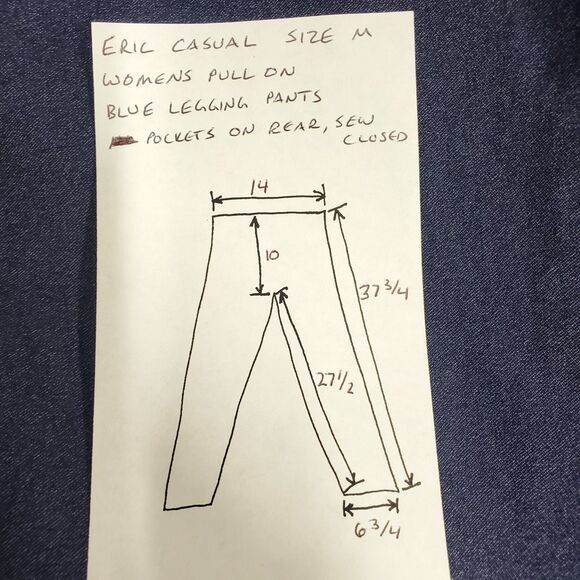 ERIC CASUAL SIZE M
WOMENS PULL ON
BLUE LEGGING PANTS
POCKETS ON REAR, SEW
CLOSED
14
10
37 3/4
27 1/2
6 3/4